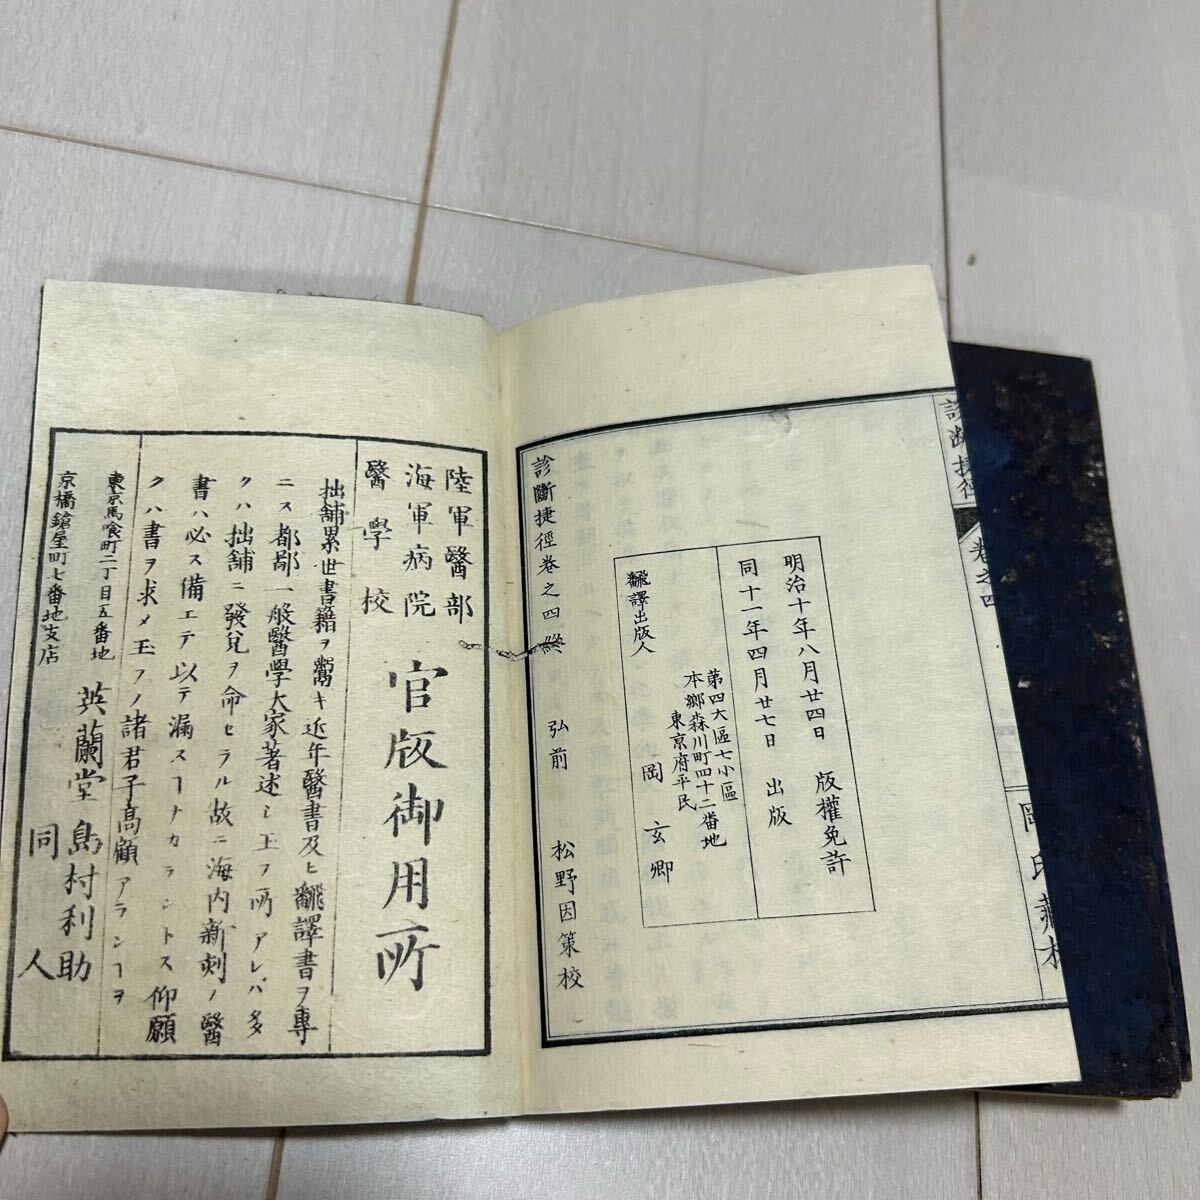 診斷捷徑
卷之四
岡氏藏板
明治十年八月廿四日 版權免許
同十一年四月廿七日 出版
第四大區七小區
本鄉森川町四十二番地
東京府平民
飜譯出版人 岡玄卿
診斷捷徑卷之四終 弘前 松野因策校
陸軍醫部
海軍病院
醫學校
官版御用所
拙舗累世書籍ヲ鬻キ近年醫書及ヒ飜譯書ヲ專
ニス都鄙一般醫學大家著述シ玉フ所アレバ多
クハ拙舗ニ發兌ヲ命セラル故ニ海内新刻ノ醫
書ハ必ス備エテ以テ漏スヿナカラントス仰願
クハ書ヲ求メ玉フノ諸君子高顧アランヿヲ
東京馬喰町二丁目五番地
英蘭堂 島村利助
京橋鎗屋町七番地支店
同人